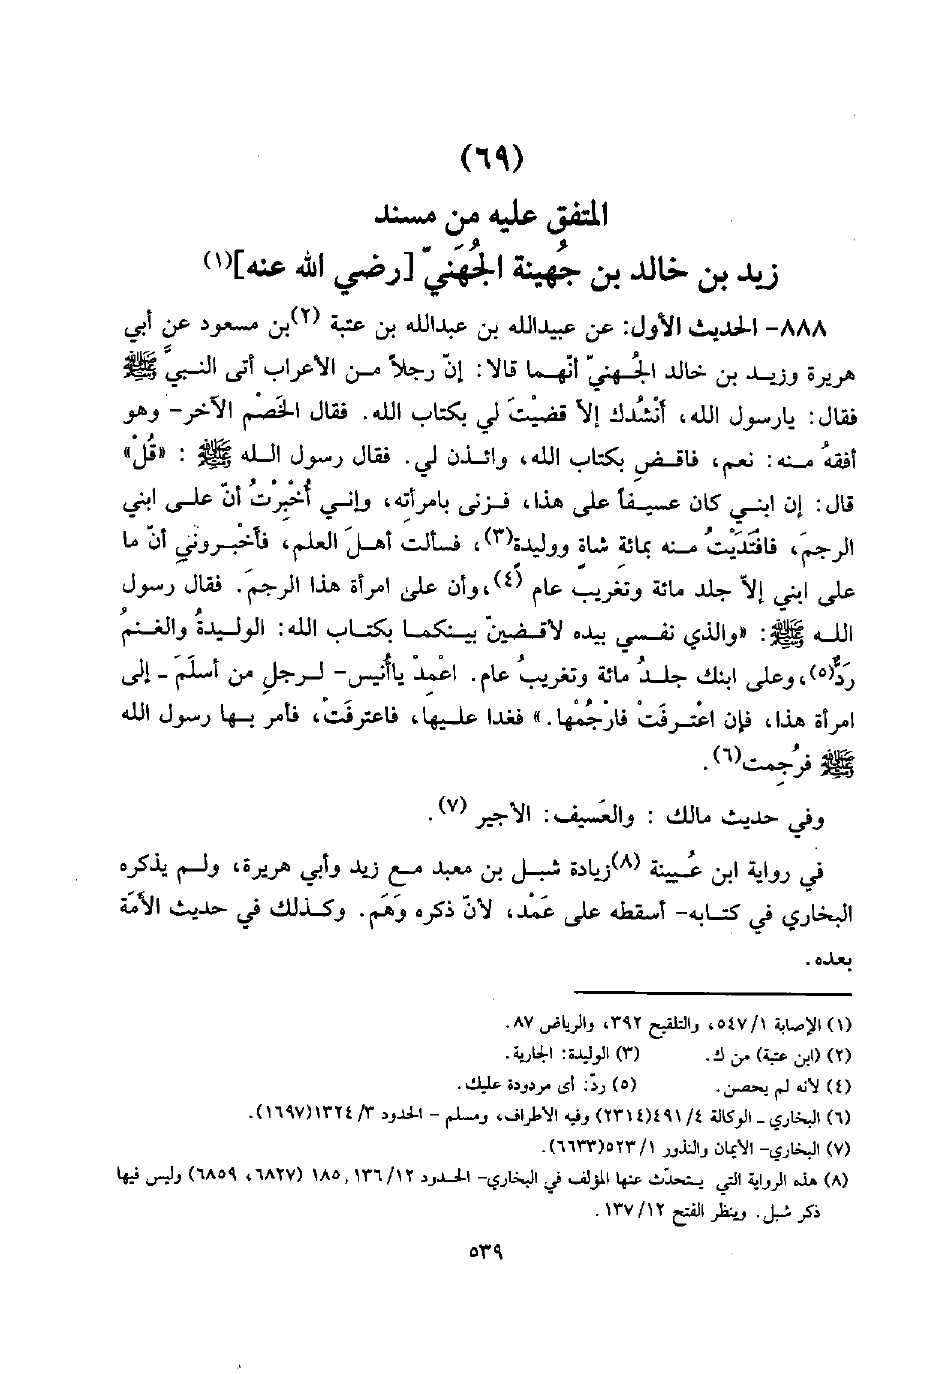 (٦٩)
المتفق عليه من مسند
زيد بن خالد بن جُهينة الجُهَنيّ [رضي الله عنه](١)
٨٨٨- الحديث الأول: عن عبيدالله بن عبدالله بن عتبة (٢)بن مسعود عن أبي
هريرة وزيـد بن خالد الجُهنيّ أنّهما قالا: إنّ رجلاً من الأعراب أتى النبيَّ ﷺ
فقال: يارسول الله، أنْشُدك إلاّ قضيْتَ لي بكتاب الله. فقال الخَصْم الآخر- وهو
أفقهُ منه: نعم، فاقـضِ بكتاب الله، وائـذن لي. فقال رسول الله ﷺ : «قُلْ»
قال: إن ابنـي كان عسيـفاً على هذا، فـزنى بامرأته، وإنـي أُخْبِرْتُ أنّ علـى ابني
الرجمَ، فافْتَدَيْتُ منه بمائة شاة ووليدةٍ(٣)، فسألت أهلَ العلم، فأخْبـروني أنّ ما
على ابني إلاّ جلد مائة وتغريبَ عام (٤)،وأن على امرأة هذا الرجمَ. فقال رسول
الله ﷺ: «والذي نفسي بيده لأقـضينّ بينكمـا بكتاب الله: الولـيدةُ والغـنم
رَدٌّ(٥)،وعلى ابنك جلـدُ مائة وتغريبُ عام. اغْمِدْ ياأُنيس- لـرجلٍ من أسلَمَ ـ إلى
امرأة هذا، فإن اعْتـرفَتْ فارْجُمْها.» فغدا علـيها، فاعترفَتْ، فأمر بـها رسول الله
ﷺ فرُجِمت(٦).
وفي حديث مالك : والعَسيف: الأجير (٧).
في رواية ابن عُيينة (٨)زيادة شبـل بن معبد مـع زيد وأبي هريرة، ولـم يذكره
البخاري في كتـابه- أسقطه على عَمْد، لأنّ ذكره وَهَم. وكـذلك في حديث الأمَة
بعده.
(١) الإصابة ١/ ٥٤٧، والتلقيح ٣٩٢، والرياض ٨٧.
(٢) (ابن عتبة) من ك. (٣) الوليدة: الجارية.
(٤) لأنه لم يحصن. (٥) ردّ: أى مردودة عليك.
(٦) البخاري ـ الوكالة ٤/ ٤٩١(٢٣١٤) وفيه الأطراف، ومسلم - الحدود ٣/ ١٣٢٤(١٦٩٧).
(٧) البخاري- الأيمان والنذور ١/ ٥٢٣(٦٦٣٣).
(٨) هذه الرواية التي يتحدّث عنها المؤلف في البخاري- الحـدود ١٢/ ١٣٦, ١٨٥ (٦٨٢٧، ٦٨٥٩) وليس فيها
ذكر شبل. وينظر الفتح ١٢/ ١٣٧.
٥٣٩